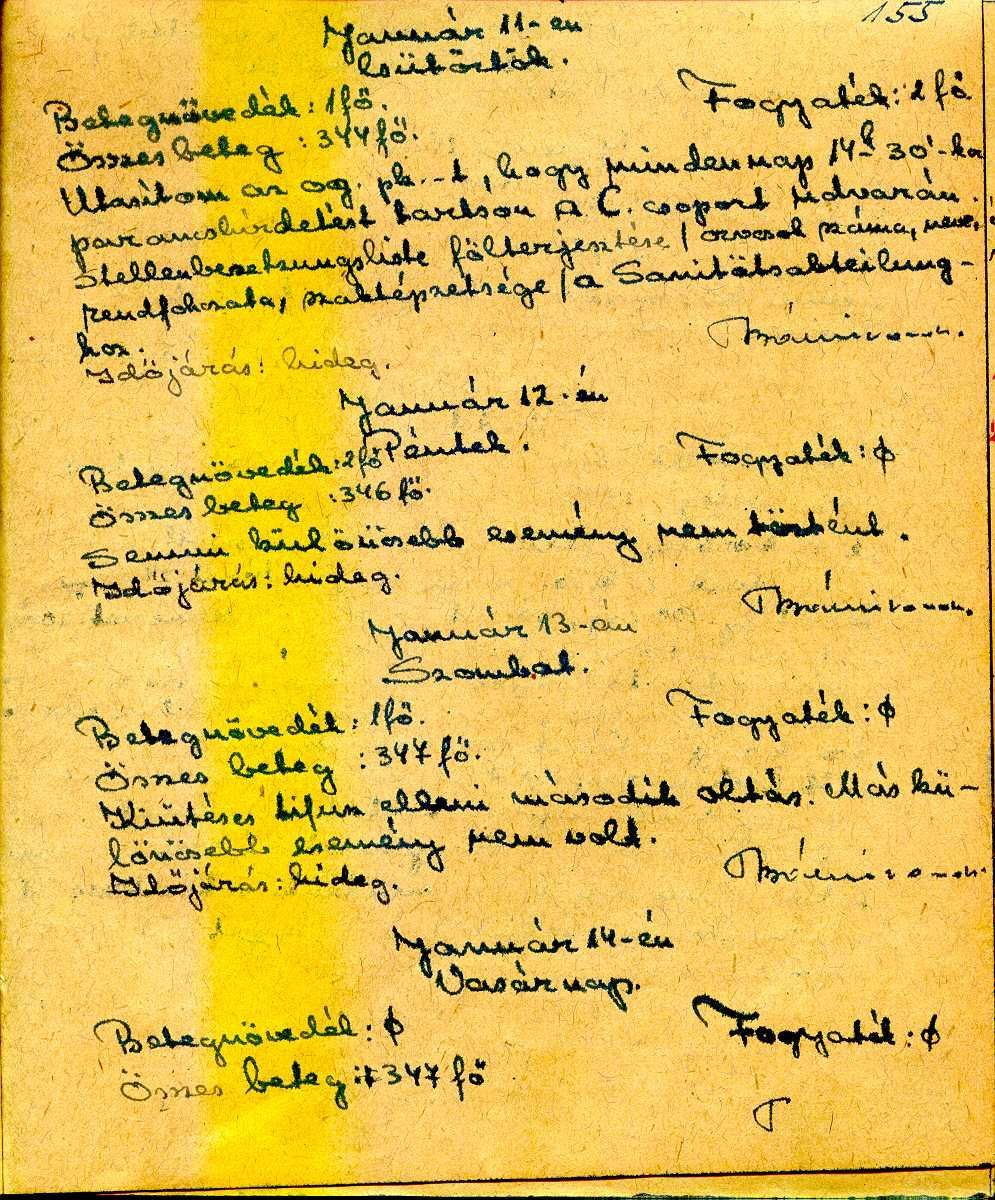 155
Január 11-én
Csütörtök.
Betegnövedék: 1 fő.
Fogyaték: 2 fő
Összes beteg : 344 fő.
Utasítom az og. pk.-t, hogy mindennap 14h 30'-kor
parancshirdetést tartson A C. csoport udvarán.
Stellenbesetzungsliste fölterjesztése / orvosok száma, neve,
rendfokozata, szakképzetsége / a Sanitätsabteilung-
hoz.
Időjárás: hideg.
Január 12-én
Péntek.
Betegnövedék: 2 fő
Fogyaték: ϕ
Összes beteg : 346 fő.
Semmi különösebb esemény nem történt.
Időjárás: hideg.
Január 13-án
Szombat.
Betegnövedék: 1 fő.
Fogyaték: ϕ
Összes beteg : 347 fő.
Kiütéses tifusz elleni második oltás. Más kü-
lönösebb esemény nem volt.
Időjárás: hideg.
Január 14-én
Vasárnap.
Betegnövedék: ϕ
Fogyaték: ϕ
Összes beteg : 347 fő